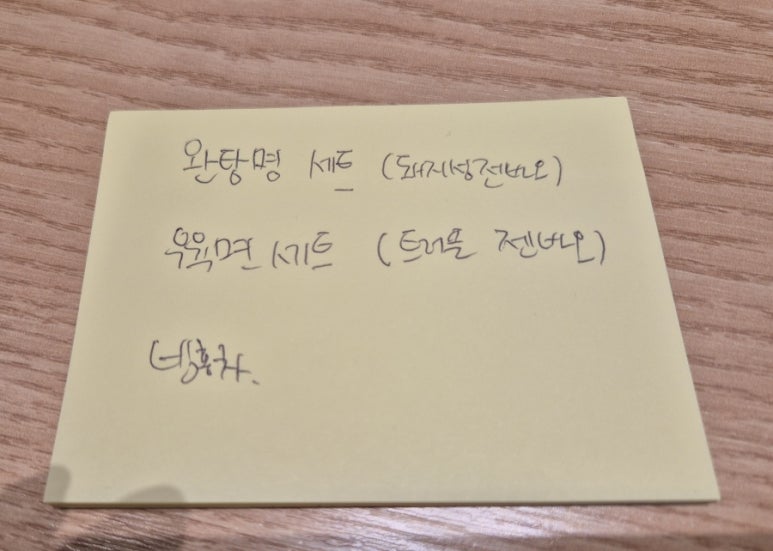 완탕명 세트 (돼지성젼바오)
우육면 세트 (트러플 젠바오)
냉홍차.